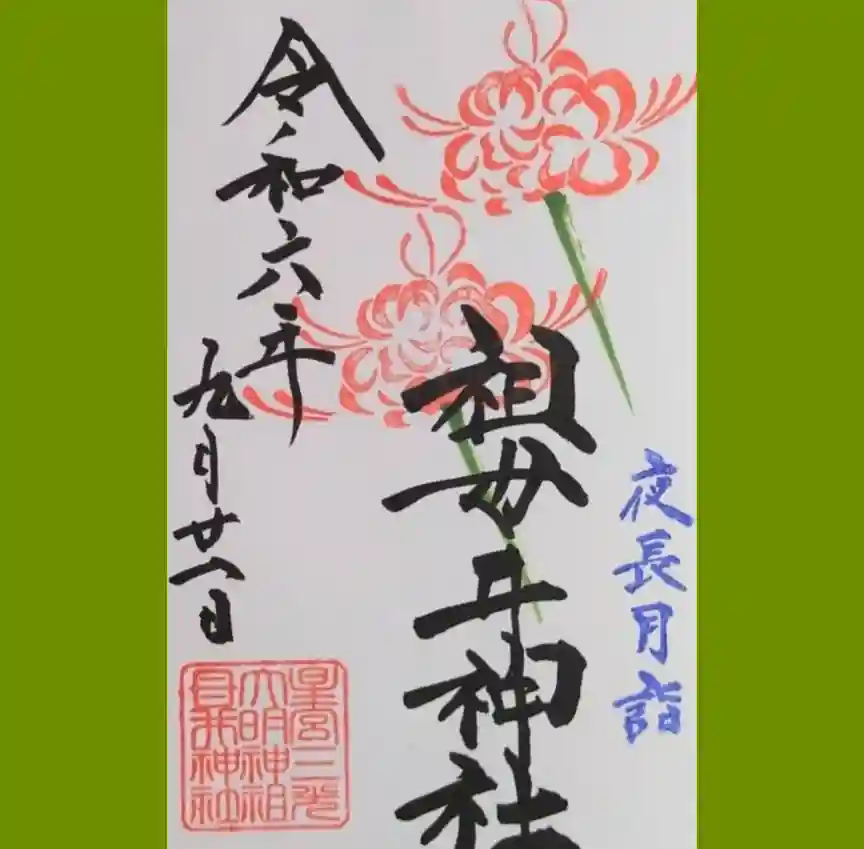 夜長月詣
祖母井神社
令和六年
九月廿一日
星宮三
大明神祖
母井神社